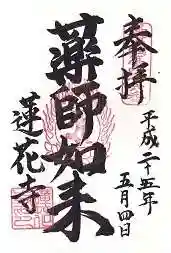 奉拝
平成二十五年
五月四日
薬師如来
蓮花寺